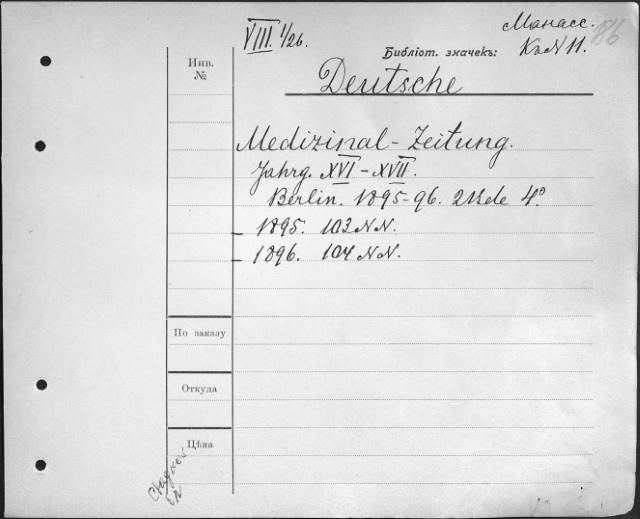 VIII. 1/26.
Манасс.
186
Библіот. значекъ: К.N 11.
Инв. №
Deutsche
Medizinal-Zeitung.
Jahrg. XVI-XVII.
Berlin. 1895-96. 2 Bde 4º
– 1895. 103 NN.
– 1896. 104 NN.
По заказу
Откуда
Цѣна